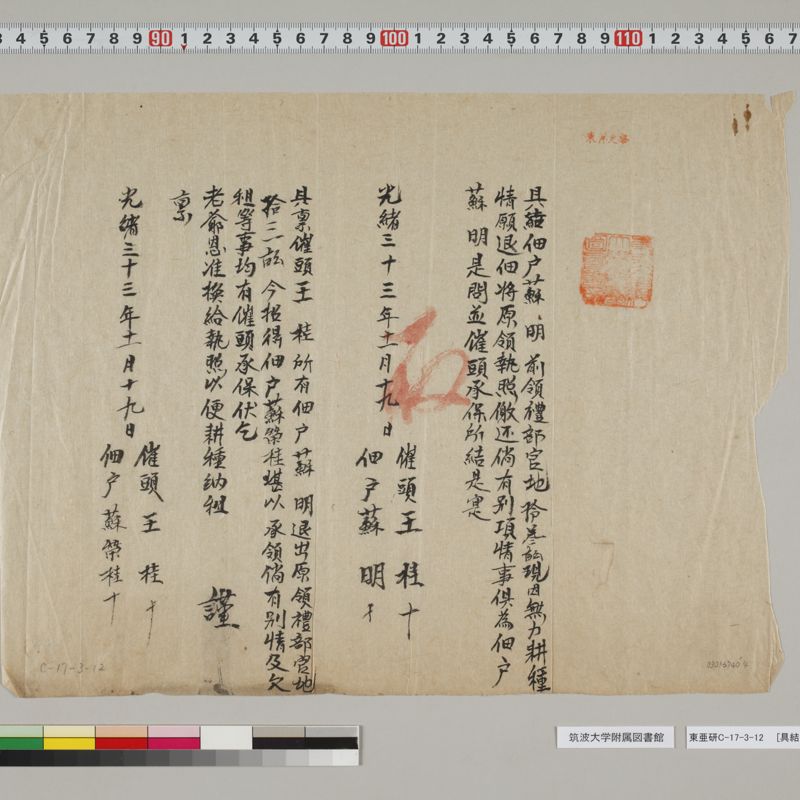 具結佃戶蘇明前領禮部官地拾叁畝現因無力耕種
情願退佃將原領執照繳还倘有别項情事俱為佃戶
蘇明是問並催頭承保所結是寔
光緒三十三年十一月十九日
催頭王桂十
佃戶蘇明十
具禀催頭王桂所有佃戶蘇明退出原領禮部官地
拾三畝今招得佃戶蘇榮桂堪以承領倘有别情及欠
租等事均有催頭承保伏乞
老爺恩准換給執照以便耕種納租
謹
禀
光緒三十三年十一月十九日
催頭王桂十
佃戶蘇榮桂十
C-17-3-12
3 4 5 6 7 8 9 90 1 2 3 4 5 6 7 8 9 100 1 2 3 4 5 6 7 8 9 110 1 2 3 4 5 6 7
筑波大学附属図書館
東亜研C-17-3-12 [具結